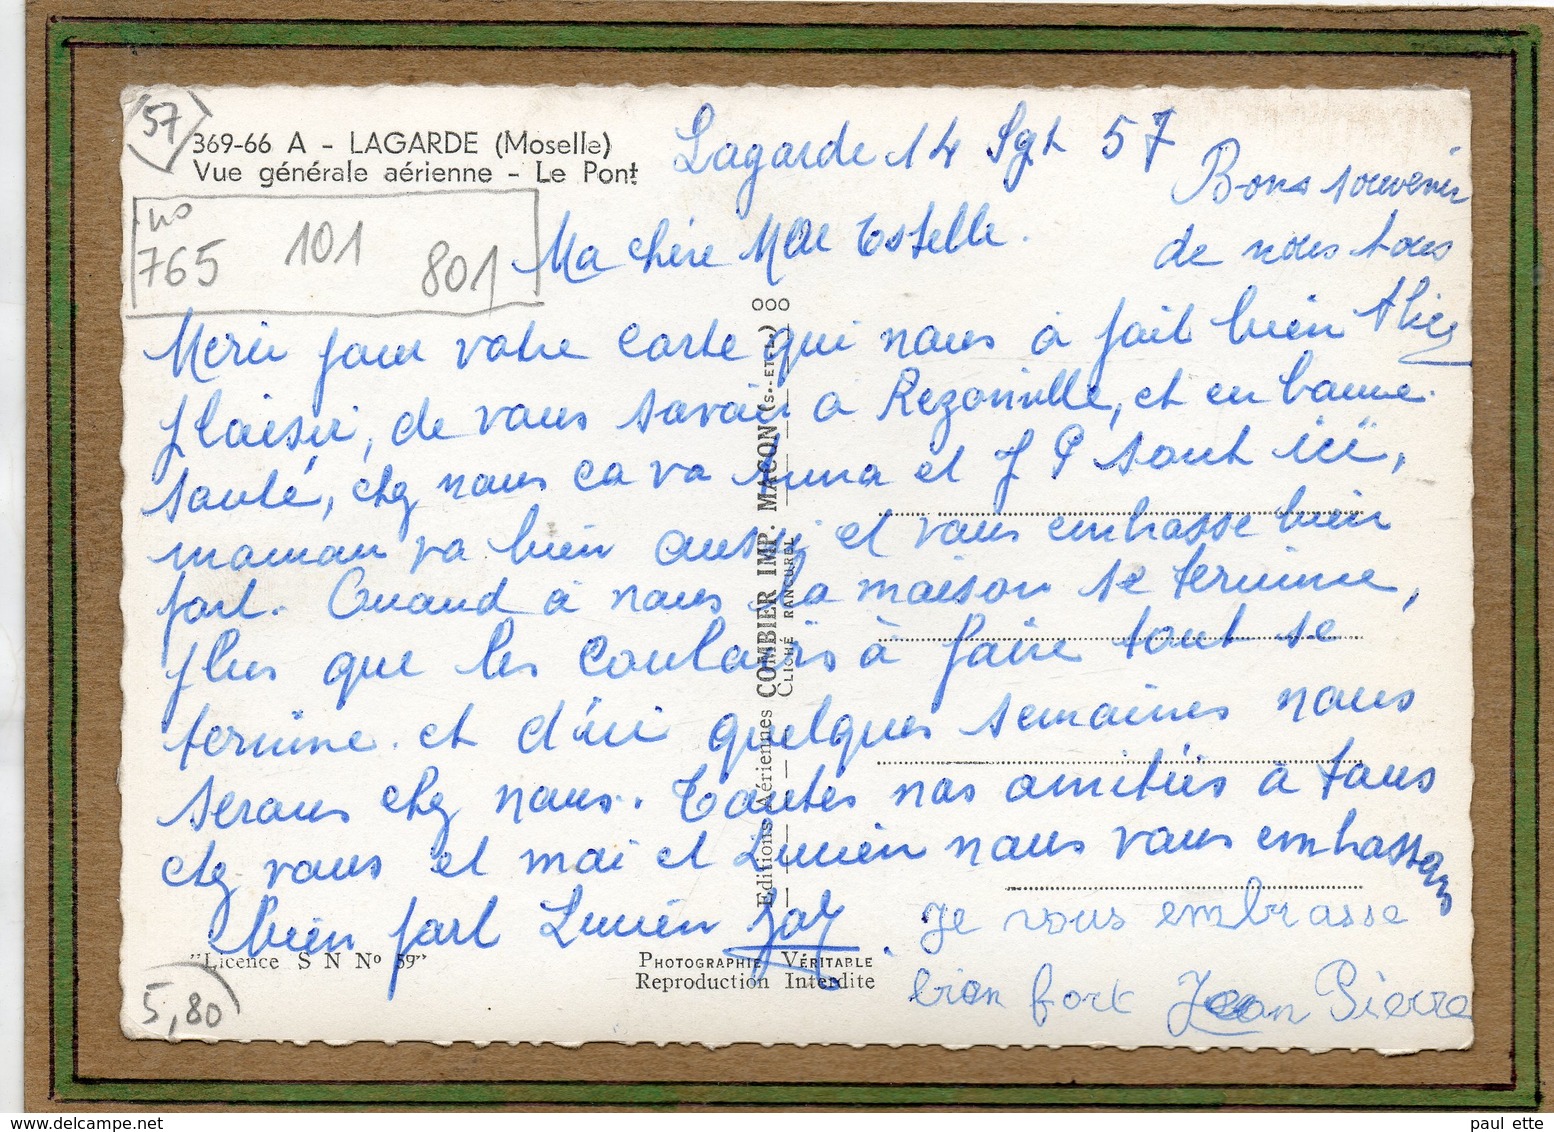 57
369-66 A - LAGARDE (Moselle)
Vue générale aérienne - Le Pont
no
765 101 801
Lagarde 14 Spt 57
Bons souvenir
de nous tous
Ma chère Mlle Estelle.
Merci pour votre carte qui nous à fait bien
plaisir, de vous savoir à Rezonville, et en bonne
santé, chez nous ca va Anna et J P sont ici,
maman va bien aussi et vous embrasse bien
fort. Quand à nous la maison se termine,
plus que les couloirs à faire tout se
termine. et d'ici quelques semaines nous
serons chez nous. Toutes nos amitiés à tous
chez vous et moi et Lucien nous vous embrassons
bien fort Lucien
Je vous embrasse
bien fort Jean Pierre
Editions Aériennes COMBIER IMP. MACON (S.-ET-L.) 000
CLICHÉ RANCUREL
"Licence S N No 59"
PHOTOGRAPHIE VÉRITABLE
Reproduction Interdite
5,80
www.delcampe.net
paul ette